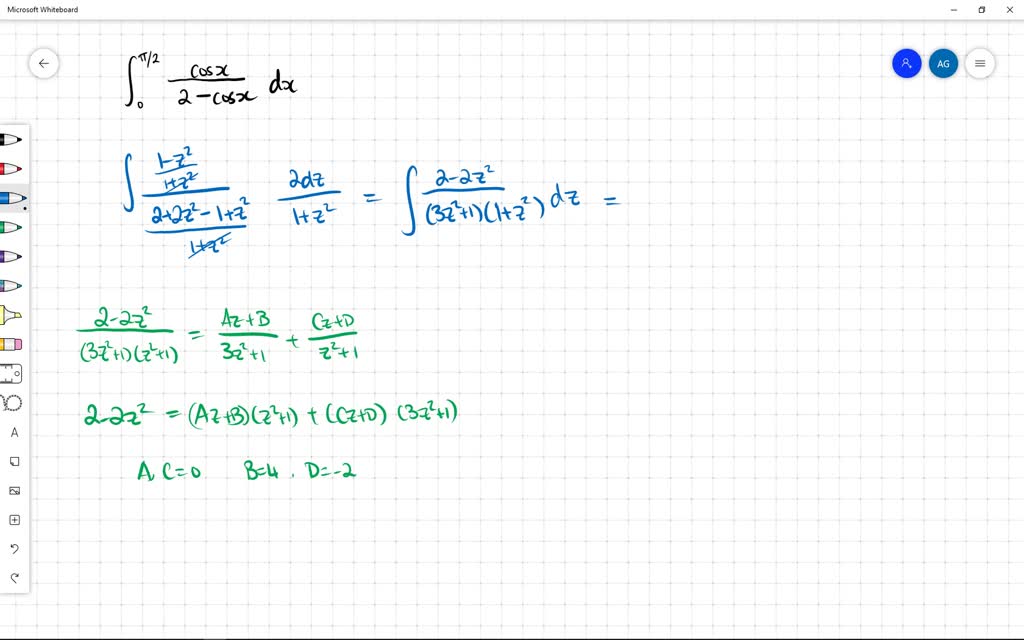 Microsoft Whiteboard
∫₀^π/2 cosx / (2 - cosx) dx
AG
∫ ((1-z²)/(1+z²)) / ((2+2z²-1+z²)/(1+z²)) 2dz/(1+z²) = ∫ (2-2z²)/((3z²+1)(1+z²)) dz =
(2-2z²)/((3z²+1)(z²+1)) = (Az+B)/(3z²+1) + (Cz+D)/(z²+1)
2-2z² = (Az+B)(z²+1) + (Cz+D) (3z²+1)
A, C=0 B=4 . D=-2
A